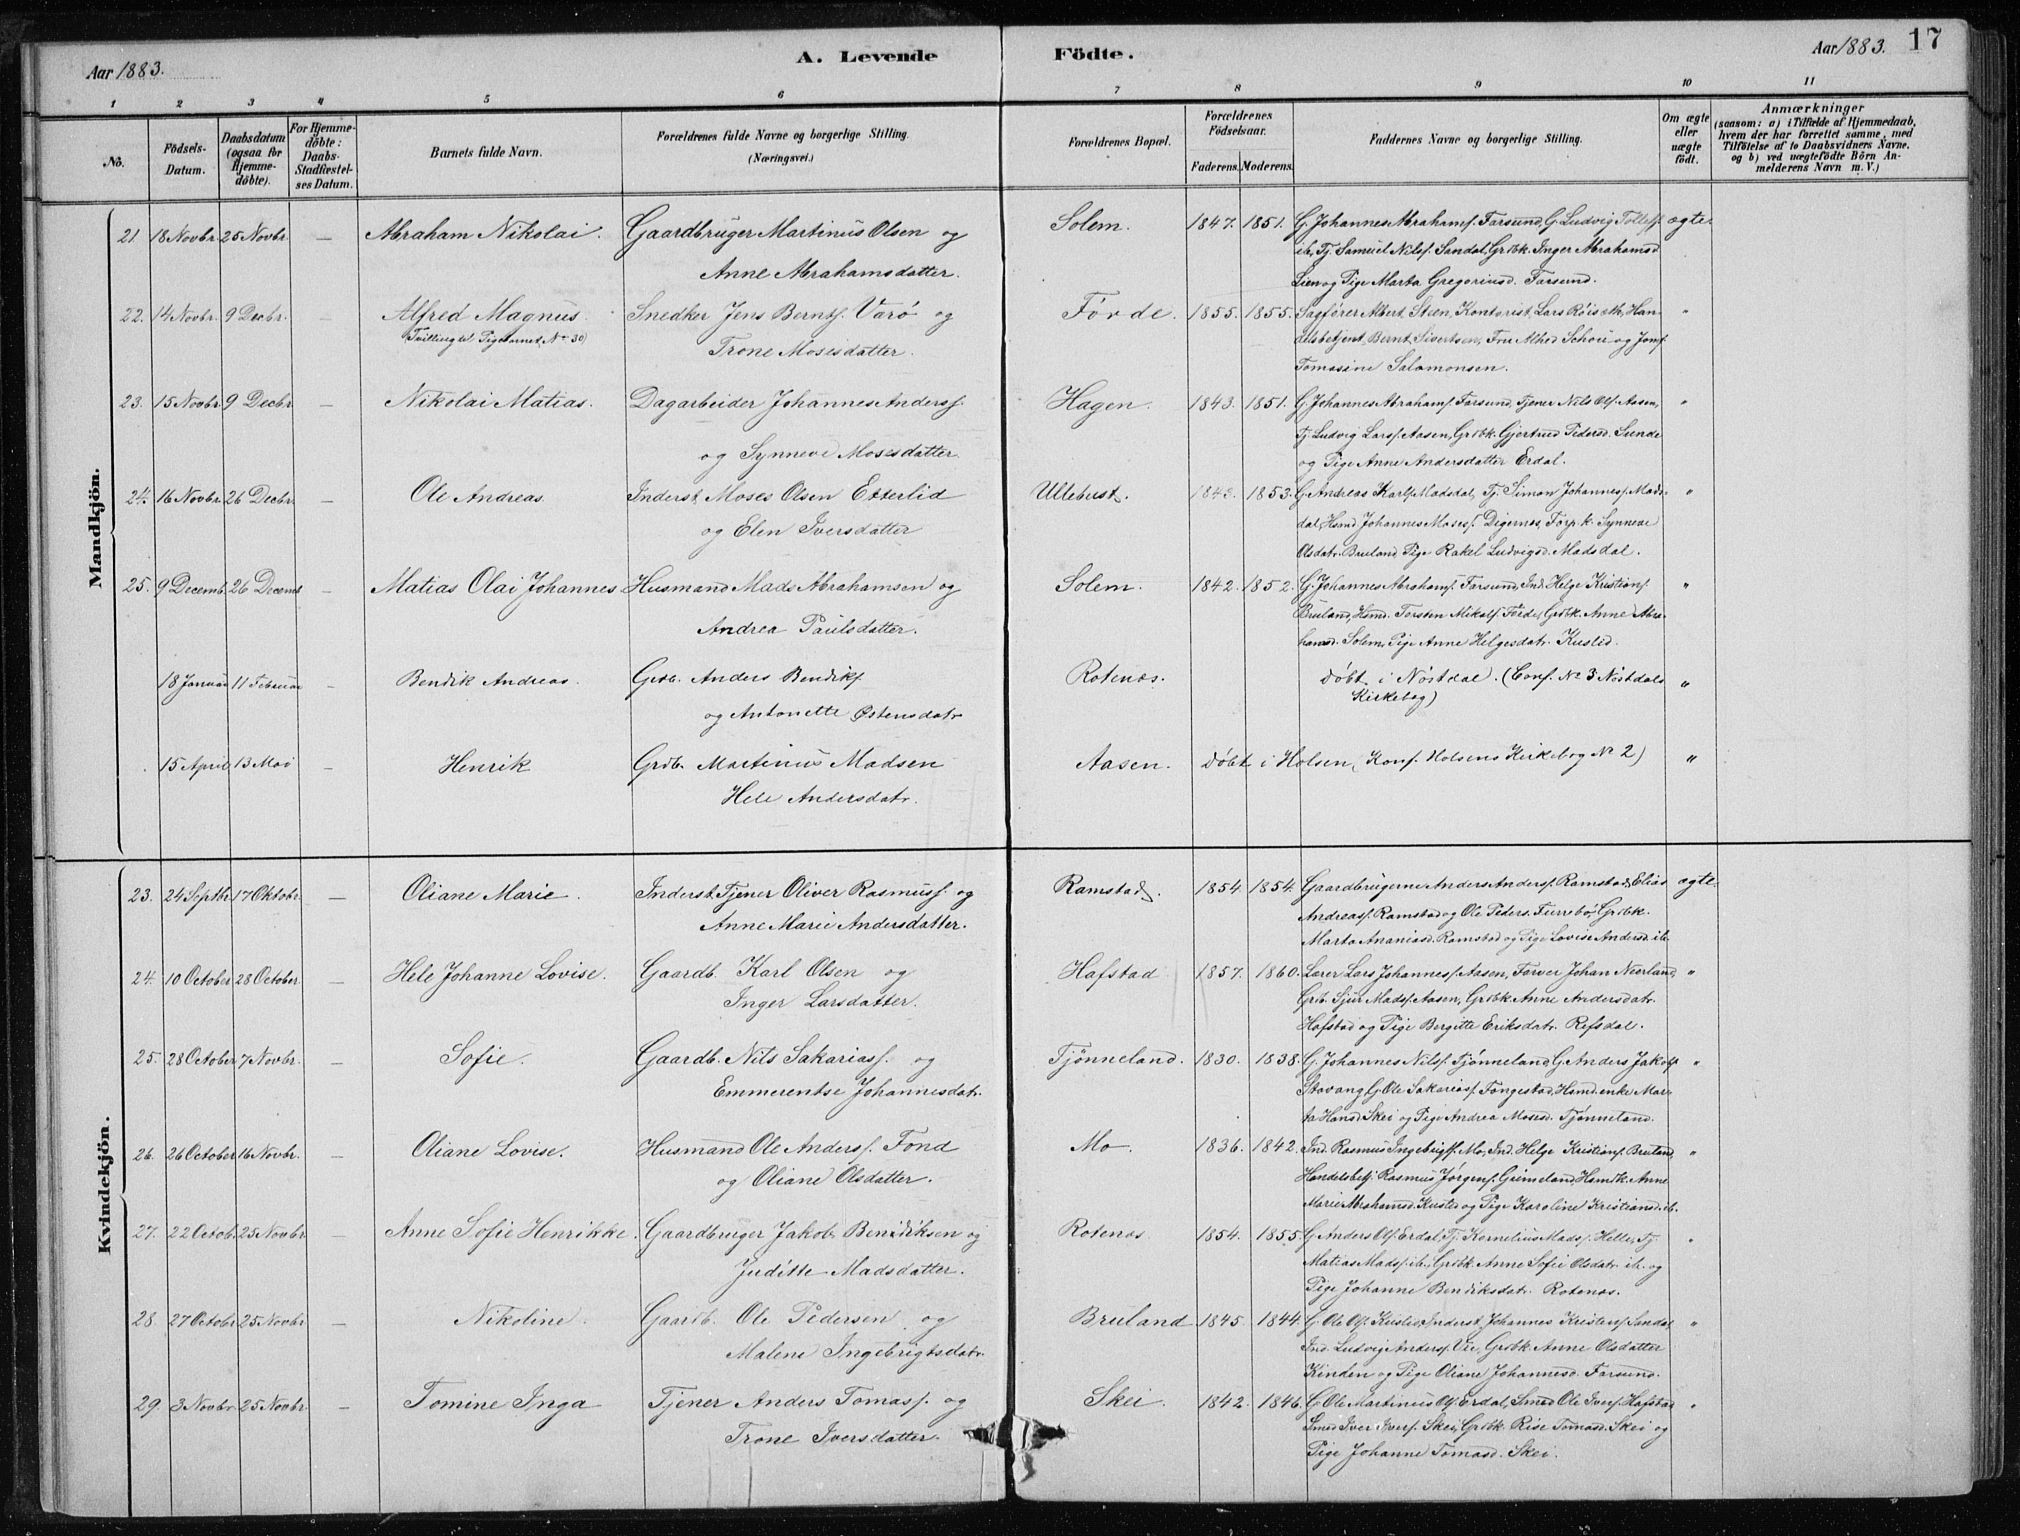 Aar 1883.
A. Levende
Födte.
Aar 1883.
17
1 2 3 4 5 6 7 8 9 10 11
No.
Födsels-Datum.
Daabsdatum (ogsaa for Hjemme-döbte).
For Hjemme-döbte: Daabs-Stadfæstel-ses Datum.
Barnets fulde Navn.
Forældrenes fulde Navne og borgerlige Stilling.
(Næringsvei.)
Forældrenes Bopæl.
Forældrenes Födselsaar.
Faderens. Moderens.
Faddernes Navne og borgerlige Stilling.
Om ægte eller uægte födt.
Anmærkninger
(saasom: a) i Tilfælde af Hjemmedaab,
hvem der har forrettet samme, med
Tilföielse af to Daabsvidners Navne,
og b) ved uægtefödte Börn An-
melderens Navn m. V.)
Mandkjön.
21 18 Novbr. 25 Novbr. — Abraham Nikolai. Gaardbruger Martinus Olsen og Solem. 1847. 1851. G. Johannes Abrahams. Farsund, G. Ludvig Tollefs. ægte.
ib, Tj. Samuel Nilss. Sandal, Grdbk. Inger Abrahamsd.
Anne Abrahamsdatter. Lien og Pige Marta Gregoriusd. Farsund.
22. 14 Novbr. 9 Decbr. — Alfred Magnus. Snedker Jens Bernts. Varö og Förde. 1855. 1855. Sagförer Albert Steen, Kontorist Lars Röiseth, Han- "
(Tvilling til Pigebarnet No 30) delsbetjent Bernt Sivertsen, Fru Alhed Schou og Jomf.
Trone Mosesdatter. Tomasine Salomonsen.
23. 15 Novbr. 9 Decbr. — Nikolai Matias. Dagarbeider Johannes Anders. Hagen. 1843. 1851. G. Johannes Abrahams. Farsund, Tjener Nils Ols. Aasen, "
Tj. Ludvig Lars. Aasen, Grdbk. Gjertrud Pedersd. Sunde
og Synneve Mosesdatter. og Pige Anne Andersdatter Erdal.
24. 16 Novbr. 26 Decbr. — Ole Andreas. Inderst Moses Olsen Etterlid Ullebust. 1843. 1853. G. Andreas Karls. Madsdal, Tj. Simon Johannes. Mads- "
dal, Hsmd. Johannes Moses. Digernes, Forp. k. Synneve
og Elen Iversdatter Olsdatr. Bruland, Pige Rakel Ludvigsd. Madsdal.
25. 9 Decemb. 26 Decemb — Matias Olai Johannes Husmand Mads Abrahamsen og Solem. 1842. 1852. G. Johannes Abrahams. Farsund, Ind. Helge Kristians. "
Bruland, Hsmd. Torsten Mikals. Förde, Grdbk. Anne Abra-
Andrea Paulsdatter. hamsd. Solem, Pige Anne Helgesdatr. Kusled.
18 Januar 11 Februar — Bendik Andreas. Grdb. Anders Bendiks. Rotenæs. Döbt i Nöstdal. (Conf. No 3 Nöstdals "
og Antonette Östensdatr. Kirkebog)
15 April 13 Mai — Henrik Grdb. Martinus Madsen Aasen. Döbt i Holsen, (Konf. Holsens Kirkebog No 2) "
Hele Andersdatr.
Kvindekjön.
23. 24 Septbr 17 Oktobr. — Oliane Marie. Inderst, Tjener Oliver Rasmuss. og Ramstad. 1854. 1854. Gaardbrugerne Anders Anders. Ramstad, Elias ægte.
Andreas. Ramstad og Ole Peders. Furrebö, Grdbk.
Anne Marie Andersdatter. Marta Ananiasd. Ramstad og Pige Lovise Andersd. ib.
24. 10 October 28 October. — Hele Johanne Lovise. Gaardb. Karl Olsen og Hafstad 1857. 1860. Lærer Lars Johannes. Aasen, Farver Johan Neerland, "
Grdb. Sjur Mads. Aasen, Grdbk. Anne Andersdatr.
Inger Larsdatter. Hafstad og Pige Bergitte Eriksdatr. Refsdal.
25. 28 October 7 Novbr. — Sofie. Gaardb. Nils Sakarias. og Tjönneland. 1830. 1838. G. Johannes Nils. Tjönneland, G. Anders Jakobs. "
Stavang, G. Ole Sakarias. Fongestad, Hsmd. enke Mar-
Emmerentse Johannesdatr. ta Hansd. Skei og Pige Andrea Mosesd. Tjönneland.
26. 26 October 16 Novbr. — Oliane Lovise. Husmand Ole Anders. Fond Mo. 1836. 1842. Ind. Rasmus Ingebrigts. Mo, Ind. Helge Kristians. Bruland, "
Handelsbetj. Rasmus Jörgens. Grimeland, Hsmdk. Anne
og Oliane Olsdatter. Marie Abrahamsd. Kusled og Pige Karoline Kristiansd. ib.
27. 22 Octob. 25 Novbr — Anne Sofie Henrikke. Gaardbruger Jakob Bendiksen og Rotenæs. 1854. 1855. G. Anders Ols. Erdal, Tj. Kornelius Mads. Helle, Tj. "
Matias Mads. ib., Grdbk. Anne Sofie Olsdatr. ib. og
Juditte Madsdatter. Pige Johanne Bendiksdatr. Rotenæs.
28. 27 Octobr 25 Novbr — Nikoline. Gaardb. Ole Pedersen og Bruland 1845. 1844. G. Ole Ols. Kusled, Inderst Johannes Kristens. Sandal, "
Ind. Ludvig Anders. Vie, Grdbk. Anne Olsdatter
Malene Ingebrigtsdatr. Kinden og Pige Oliane Johannesd. Farsund.
29. 3 Novbr. 25 Novbr — Tomine Inga Tjener Anders Tomas. og Skei. 1842. 1846. G. Ole Martinus Ols. Erdal, Smed Ole Ivers. Hafstad "
Smed Iver Ivers. Skei, Grdbk. Rise Tomasd. Skei og
Trone Iversdatter. Pige Johanne Tomasd. Skei.